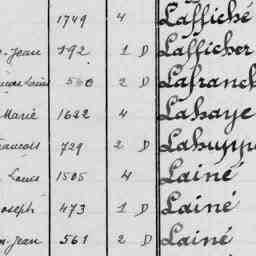 1749 4 Laffiché
Jean 192 1 D Lafficher
Louis 560 2 D Lafranch
Marie 1622 4 Lahaye
François 729 2 D Lahuppe
Louis 1505 4 Lainé
Joseph 473 1 D Lainé
Jean 561 2 D Lainé